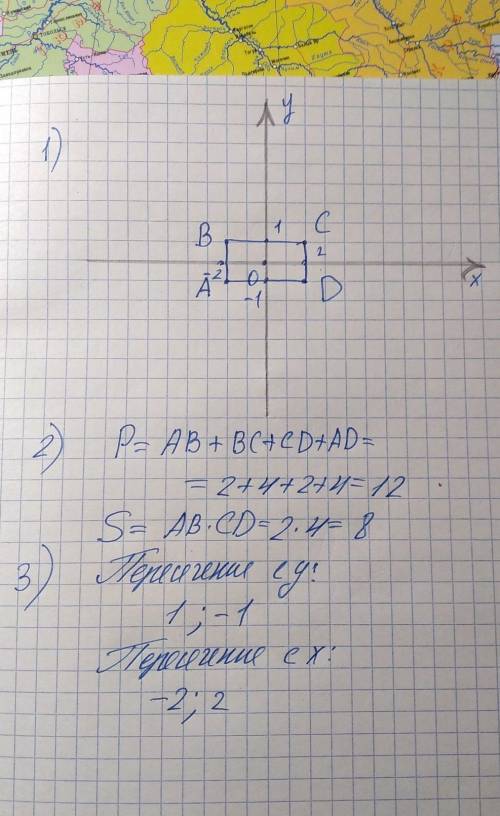 1)
y
B 1 C
-2 2
x
A 0 D
-1
2) P= AB+BC+CD+AD=
= 2+4+2+4= 12
S= AB·CD=2·4= 8
3) Пересечение с y:
1 ; -1
Пересечение с x:
-2; 2